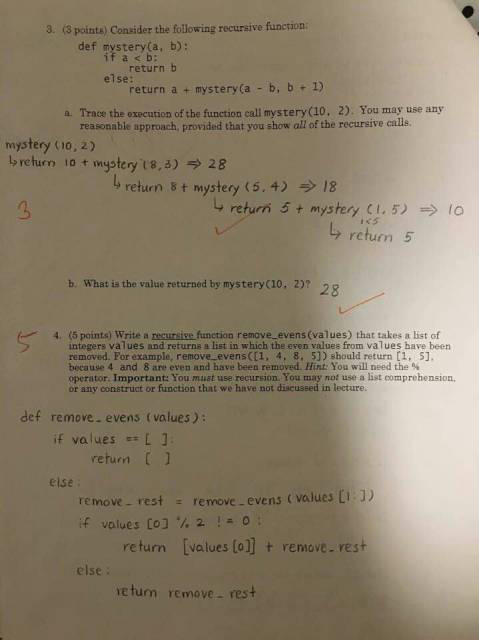 3. (3 points) Consider the following recursive function:
def mystery(a, b):
if a < b:
return b
else:
return a + mystery(a - b, b + 1)
a. Trace the execution of the function call mystery(10, 2). You may use any
reasonable approach, provided that you show all of the recursive calls.
mystery (10, 2)
↳ return 10 + mystery (8, 3) ⇒ 28
↳ return 8 + mystery (5, 4) ⇒ 18
↳ return 5 + mystery (1, 5) ⇒ 10
1<5
↳ return 5
3
b. What is the value returned by mystery(10, 2)? 28
5
4. (5 points) Write a recursive function remove_evens(values) that takes a list of
integers values and returns a list in which the even values from values have been
removed. For example, remove_evens([1, 4, 8, 5]) should return [1, 5],
because 4 and 8 are even and have been removed. Hint: You will need the %
operator. Important: You must use recursion. You may not use a list comprehension,
or any construct or function that we have not discussed in lecture.
def remove_evens (values):
if values == [ ]:
return [ ]
else:
remove_rest = remove_evens (values [1:])
if values [0] % 2 != 0 :
return [values [0]] + remove_rest
else:
return remove_rest